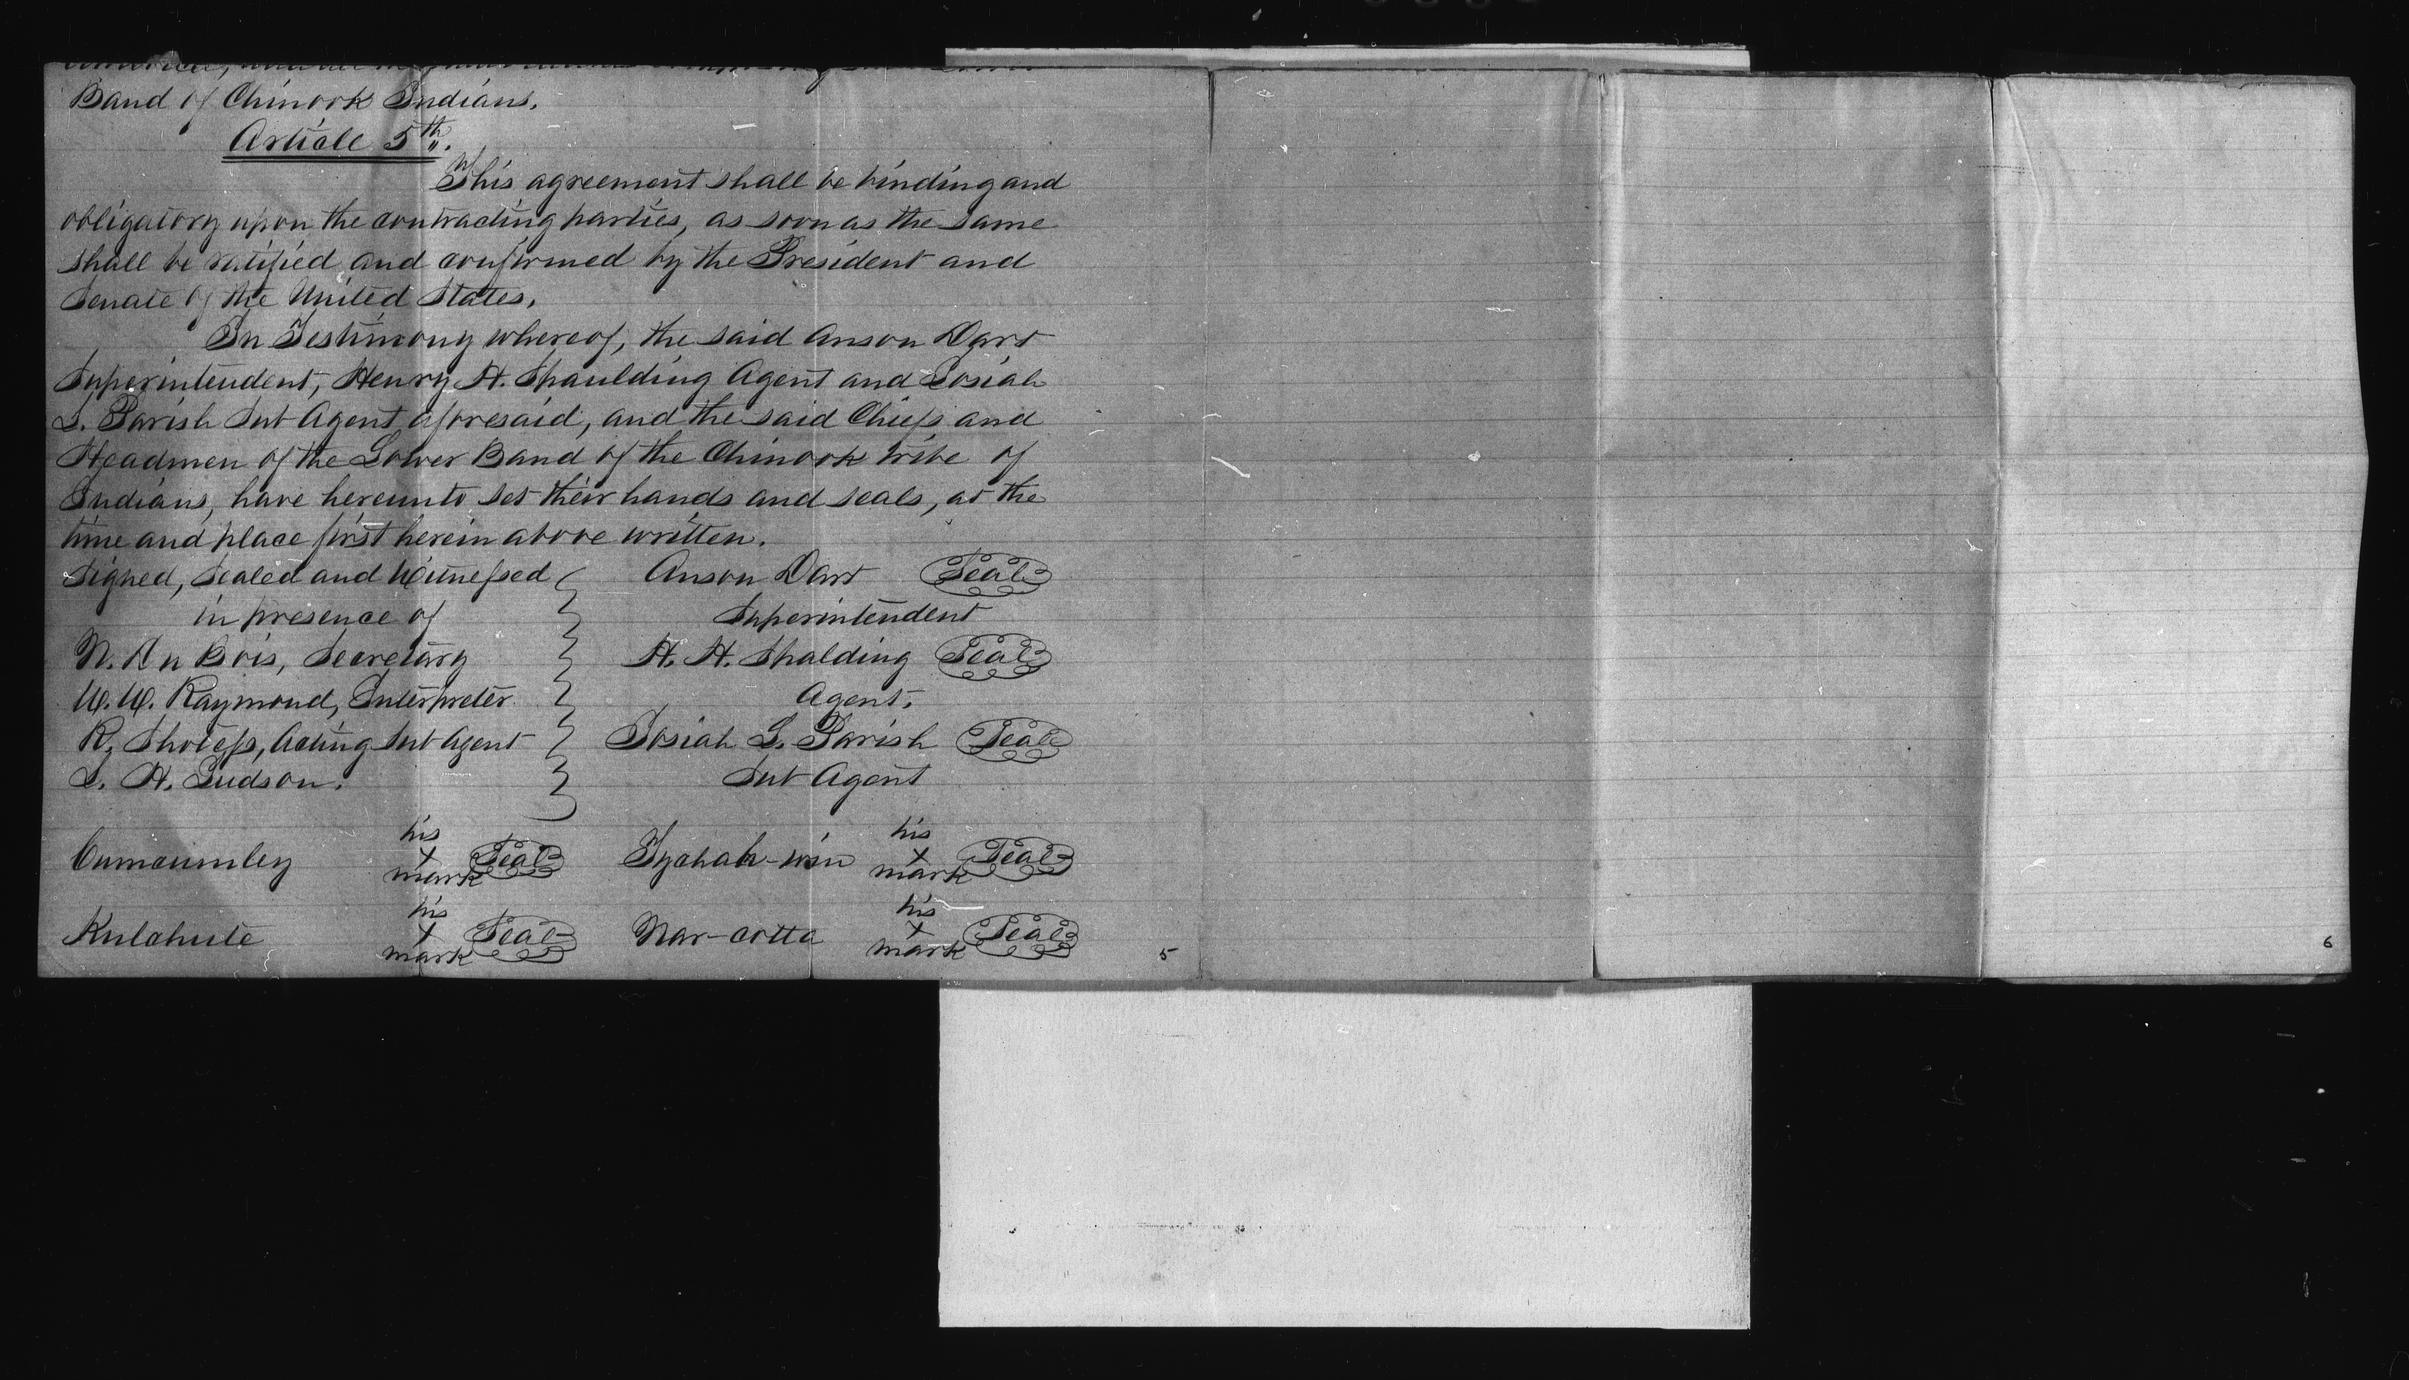 Band of Chinook Indians.
Article 5th.
This agreement shall be binding and
obligatory upon the contracting parties, as soon as the same
shall be ratified and confirmed by the President and
Senate of the United States.
In Testimony whereof, the said Anson Dart
Superintendent, Henry H. Spaulding Agent and Josiah
L. Parish Sub Agent aforesaid, and the said Chiefs and
Headmen of the Lower Band of the Chinook tribe of
Indians, have hereunto set their hands and seals, at the
time and place first herein above written.
Signed, Sealed and Witnessed
in presence of
N. Du Bois, Secretary
W. W. Raymond, Interpreter
R. Shotess, Acting Sub Agent
L. H. Judson.
Anson Dart Seal
Superintendent
H. H. Spalding Seal
Agent.
Josiah L. Parish Seal
Sub Agent
Cumcumley his x mark Seal Tychah-win his x mark Seal
Kulchute his x mark Seal Nar-cotta his x mark Seal
5
6